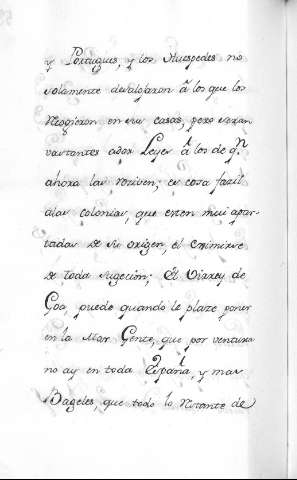 y Portugues, y los Huespedes no
solamente desalojaron â los que los
Recogieron en sus casas, pero seran
bastantes a dar Leyes â los de q.ⁿ
ahora las resiven; es cosa fazil
a las colonias, que esten mui apar-
tadas de su origen, el eximirse
de toda sugecion; El Virrey de
Goa, puede quando le plaze poner
en la Mar Gente, que por ventura
no ay en toda España, y mas
Bageles, que todo lo Restante de